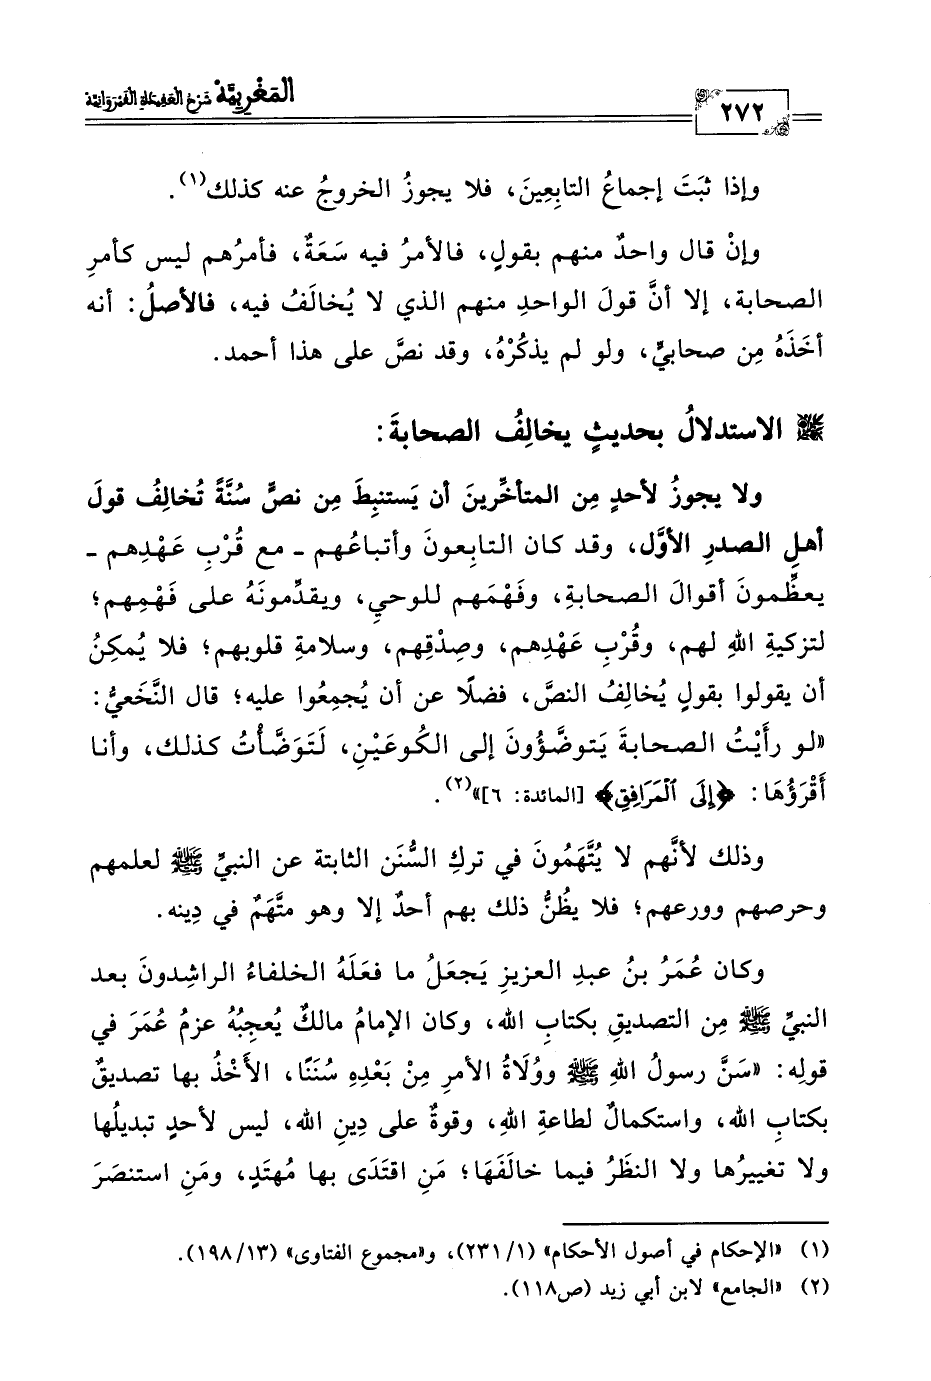 المَغْرِبِيَّة شَرْحُ العَقِيدَةِ القَيْرَوَانِيَّة
٢٧٢
وإذا ثبَتَ إجماعُ التابِعِينَ، فلا يجوزُ الخروجُ عنه كذلك(١).
وإنْ قال واحدٌ منهم بقولٍ، فالأمرُ فيه سَعَةٌ، فأمرُهم ليس كأمرِ
الصحابة، إلا أنَّ قولَ الواحدِ منهم الذي لا يُخالَفُ فيه، فالأصلُ: أنه
أخَذَهُ مِن صحابيٍّ، ولو لم يذكُرْهُ، وقد نصَّ على هذا أحمد.
الاستدلالُ بحديثٍ يخالِفُ الصحابةَ:
ولا يجوزُ لأحدٍ مِن المتأخِّرينَ أن يَستنبِطَ مِن نصٍّ سُنَّةً تُخالِفُ قولَ
أهلِ الصدرِ الأوَّل، وقد كان التابِعونَ وأتباعُهم ـ مع قُرْبِ عَهْدِهم ـ
يعظِّمونَ أقوالَ الصحابةِ، وفَهْمَهم للوحي، ويقدِّمونَهُ على فَهْمِهم؛
لتزكيةِ اللهِ لهم، وقُرْبِ عَهْدِهم، وصِدْقِهم، وسلامةِ قلوبهم؛ فلا يُمكِنُ
أن يقولوا بقولٍ يُخالِفُ النصَّ، فضلًا عن أن يُجمِعُوا عليه؛ قال النَّخَعيُّ:
«لو رأَيْتُ الصحابةَ يَتوضَّؤُونَ إلى الكُوعَيْنِ، لَتَوَضَّأْتُ كذلك، وأنا
أَقْرَؤُهَا: ﴿إِلَى ٱلْمَرَافِقِ﴾ [المائدة: ٦]»(٢).
وذلك لأنَّهم لا يُتَّهَمُونَ في تركِ السُّنَن الثابتة عن النبيِّ ﷺ لعلمهم
وحرصهم وورعهم؛ فلا يظُنُّ ذلك بهم أحدٌ إلا وهو متَّهَمٌ في دِينه.
وكان عُمَرُ بنُ عبدِ العزيزِ يَجعَلُ ما فعَلَهُ الخلفاءُ الراشدونَ بعد
النبيِّ ﷺ مِن التصديقِ بكتابِ الله، وكان الإمامُ مالكٌ يُعجِبُهُ عزمُ عُمَرَ في
قوله: «سَنَّ رسولُ اللهِ ﷺ ووُلَاةُ الأمرِ مِنْ بَعْدِهِ سُنَنًا، الأَخْذُ بها تصديقٌ
بكتابِ الله، واستكمالٌ لطاعةِ اللهِ، وقوةٌ على دِينِ الله، ليس لأحدٍ تبديلُها
ولا تغييرُها ولا النظَرُ فيما خالَفَهَا؛ مَنِ اقتَدَى بها مُهتَدٍ، ومَنِ استنصَرَ
(١) «الإحكام في أصول الأحكام» (١/ ٢٣١)، و«مجموع الفتاوى» (١٣/ ١٩٨).
(٢) «الجامع» لابن أبي زيد (ص١١٨).